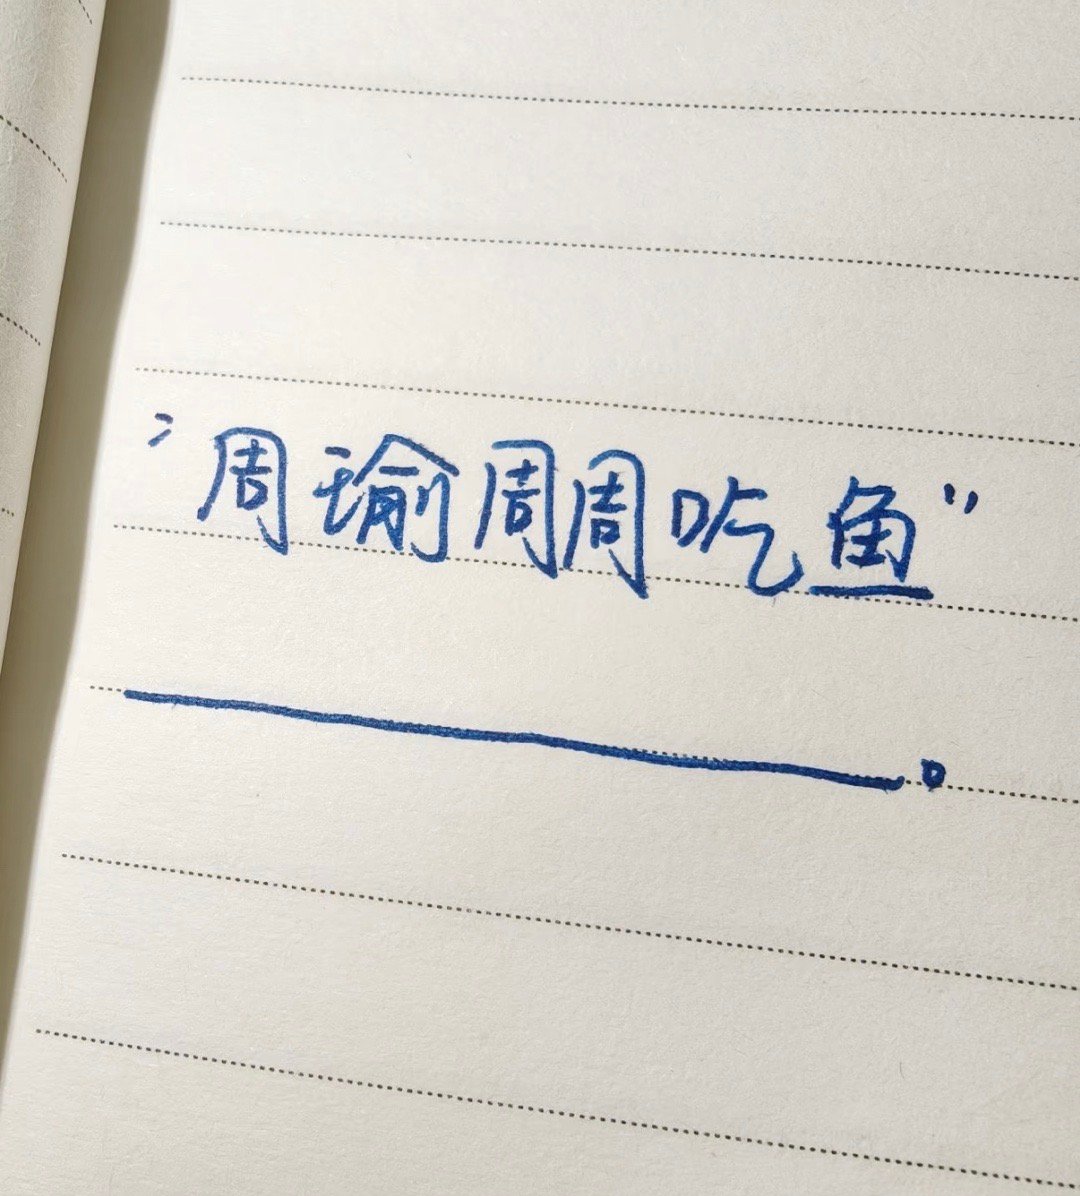 “周瑜周周吃鱼”
。